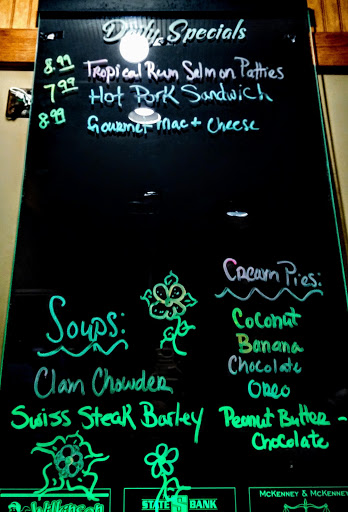 Daily Specials
8.99 Tropical Rum Salmon Patties
7.99 Hot Pork Sandwich
8.99 Gourmet Mac + Cheese
Soups:
Clam Chowder
Swiss Steak Barley
Cream Pies:
Coconut
Banana
Chocolate
Oreo
Peanut Butter -
Chocolate
Wilkinson
STATE BANK
MCKENNEY & MCKENNEY